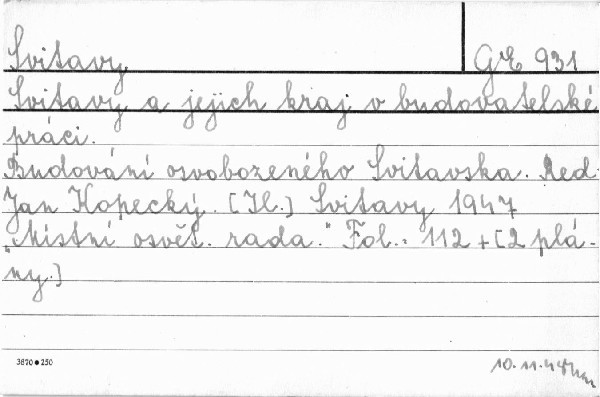 Svitavy. GE 931
Svitavy a jejich kraj v budovatelské
práci.
Budování osvobozeného Svitavska. Red.
Jan Kopecký. [Il.] Svitavy 1947
"Místní osvět. rada." Fol.: 112 + [2 plá-
ny.]
3870 • 250 10.11.47